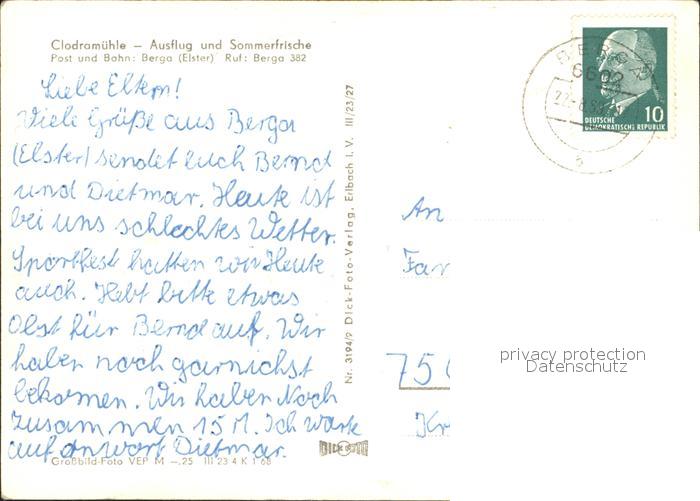 Clodramühle – Ausflug und Sommerfrische
Post und Bahn: Berga (Elster) Ruf: Berga 382
Liebe Eltern!
Viele Grüße aus Berga
(Elster) sendet Euch Bernd
und Dietmar. Heute ist
bei uns schlechtes Wetter.
Sportfest hatten wir Heute
auch. Hebt bitte etwas
Obst für Bernd auf. Wir
haben noch garnichst
bekommen. Wir haben Noch
zusammen 15 M. Ich warte
auf Antwort Dietmar.
Großbild-Foto VEP M –,25 III 23 4 K 1 68
Nr. 3194/2 Dick-Foto-Verlag, Erlbach i. V. III/23/27
DICK FOTO
BERGA
6602
10
DEUTSCHE
DEMOKRATISCHE REPUBLIK
An
Fam
privacy protection
Datenschutz